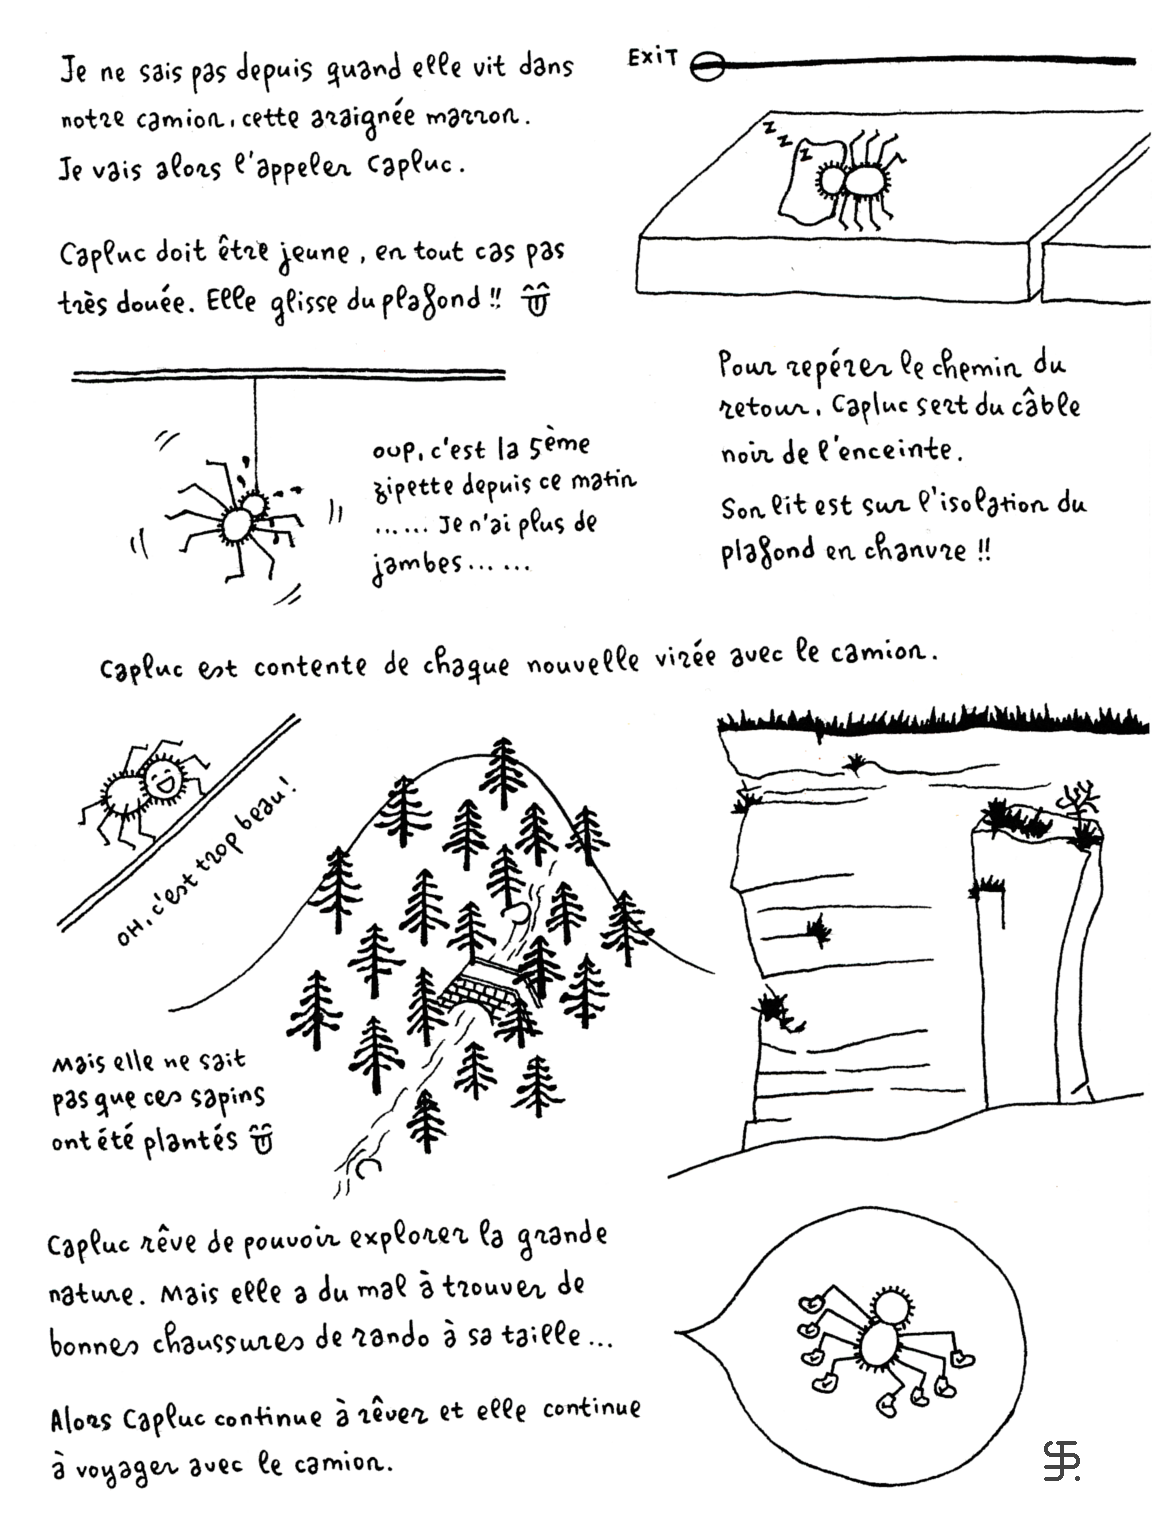 Je ne sais pas depuis quand elle vit dans
notre camion, cette araignée marron.
Je vais alors l'appeler Capluc.
Capluc doit être jeune, en tout cas pas
très douée. Elle glisse du plafond !!
EXIT
z z z
Pour repérer le chemin du
retour, Capluc sert du câble
noir de l'enceinte.
Son lit est sur l'isolation du
plafond en chanvre !!
oup, c'est la 5ème
zipette depuis ce matin
...... Je n'ai plus de
jambes... ...
Capluc est contente de chaque nouvelle virée avec le camion.
OH, c'est trop beau!
Mais elle ne sait
pas que ces sapins
ont été plantés
Capluc rêve de pouvoir explorer la grande
nature. Mais elle a du mal à trouver de
bonnes chaussures de rando à sa taille...
Alors Capluc continue à rêver et elle continue
à voyager avec le camion.